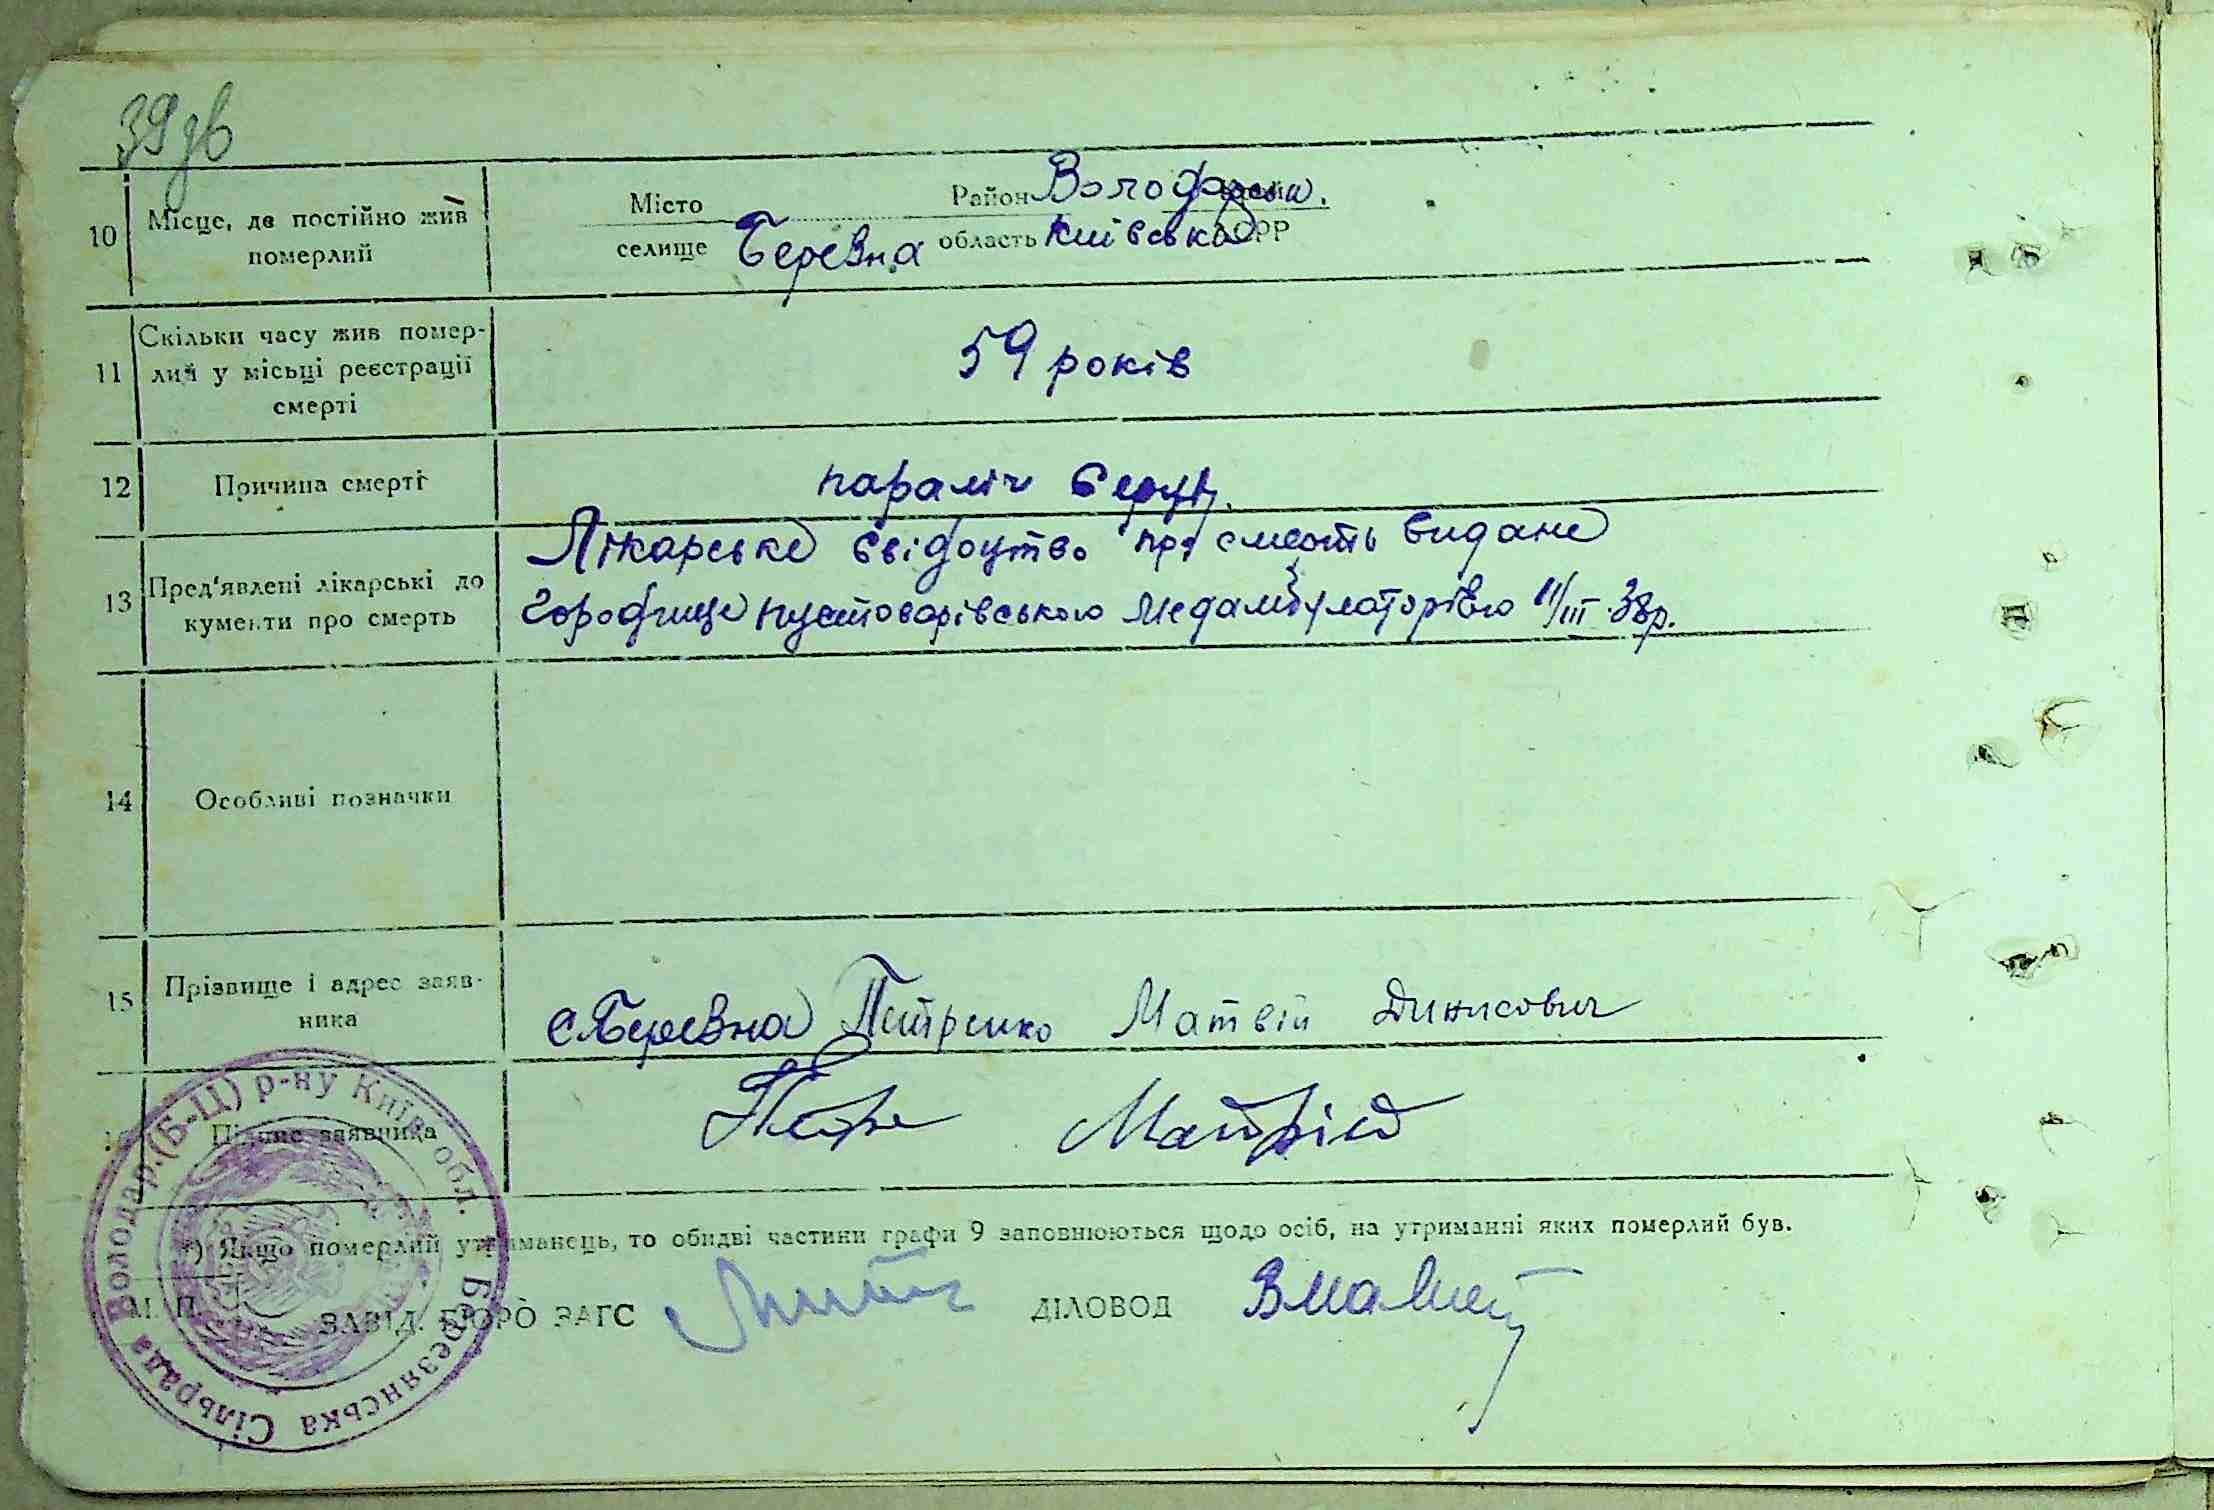 39 зв
10 Місце, де постійно жив померлий
Місто Район Володарськ.
селище Березна область Київська СРР
11 Скільки часу жив помер-
лий у місьці реєстрації
смерті
59 років
12 Причина смерті
параліч серця.
13 Пред'явлені лікарські до
кументи про смерть
Лікарське свідоцтво про смерть видане
Городище пустоварівською медамбулаторією 11/III 38р.
14 Особливі позначки
15 Прізвище і адрес заяв-
ника
с. Березна Петренко Матвій Динисович
16 Підпис заявника
Петре Матвій
*) Якщо померлий утриманець, то обидві частини графи 9 заповнюються щодо осіб, на утриманні яких померлий був.
М. П.
ЗАВІД. БЮРО ЗАГС ДІЛОВОД
Березянська Сільрада Володар.(Б-Ц) р-ну Київ. обл.